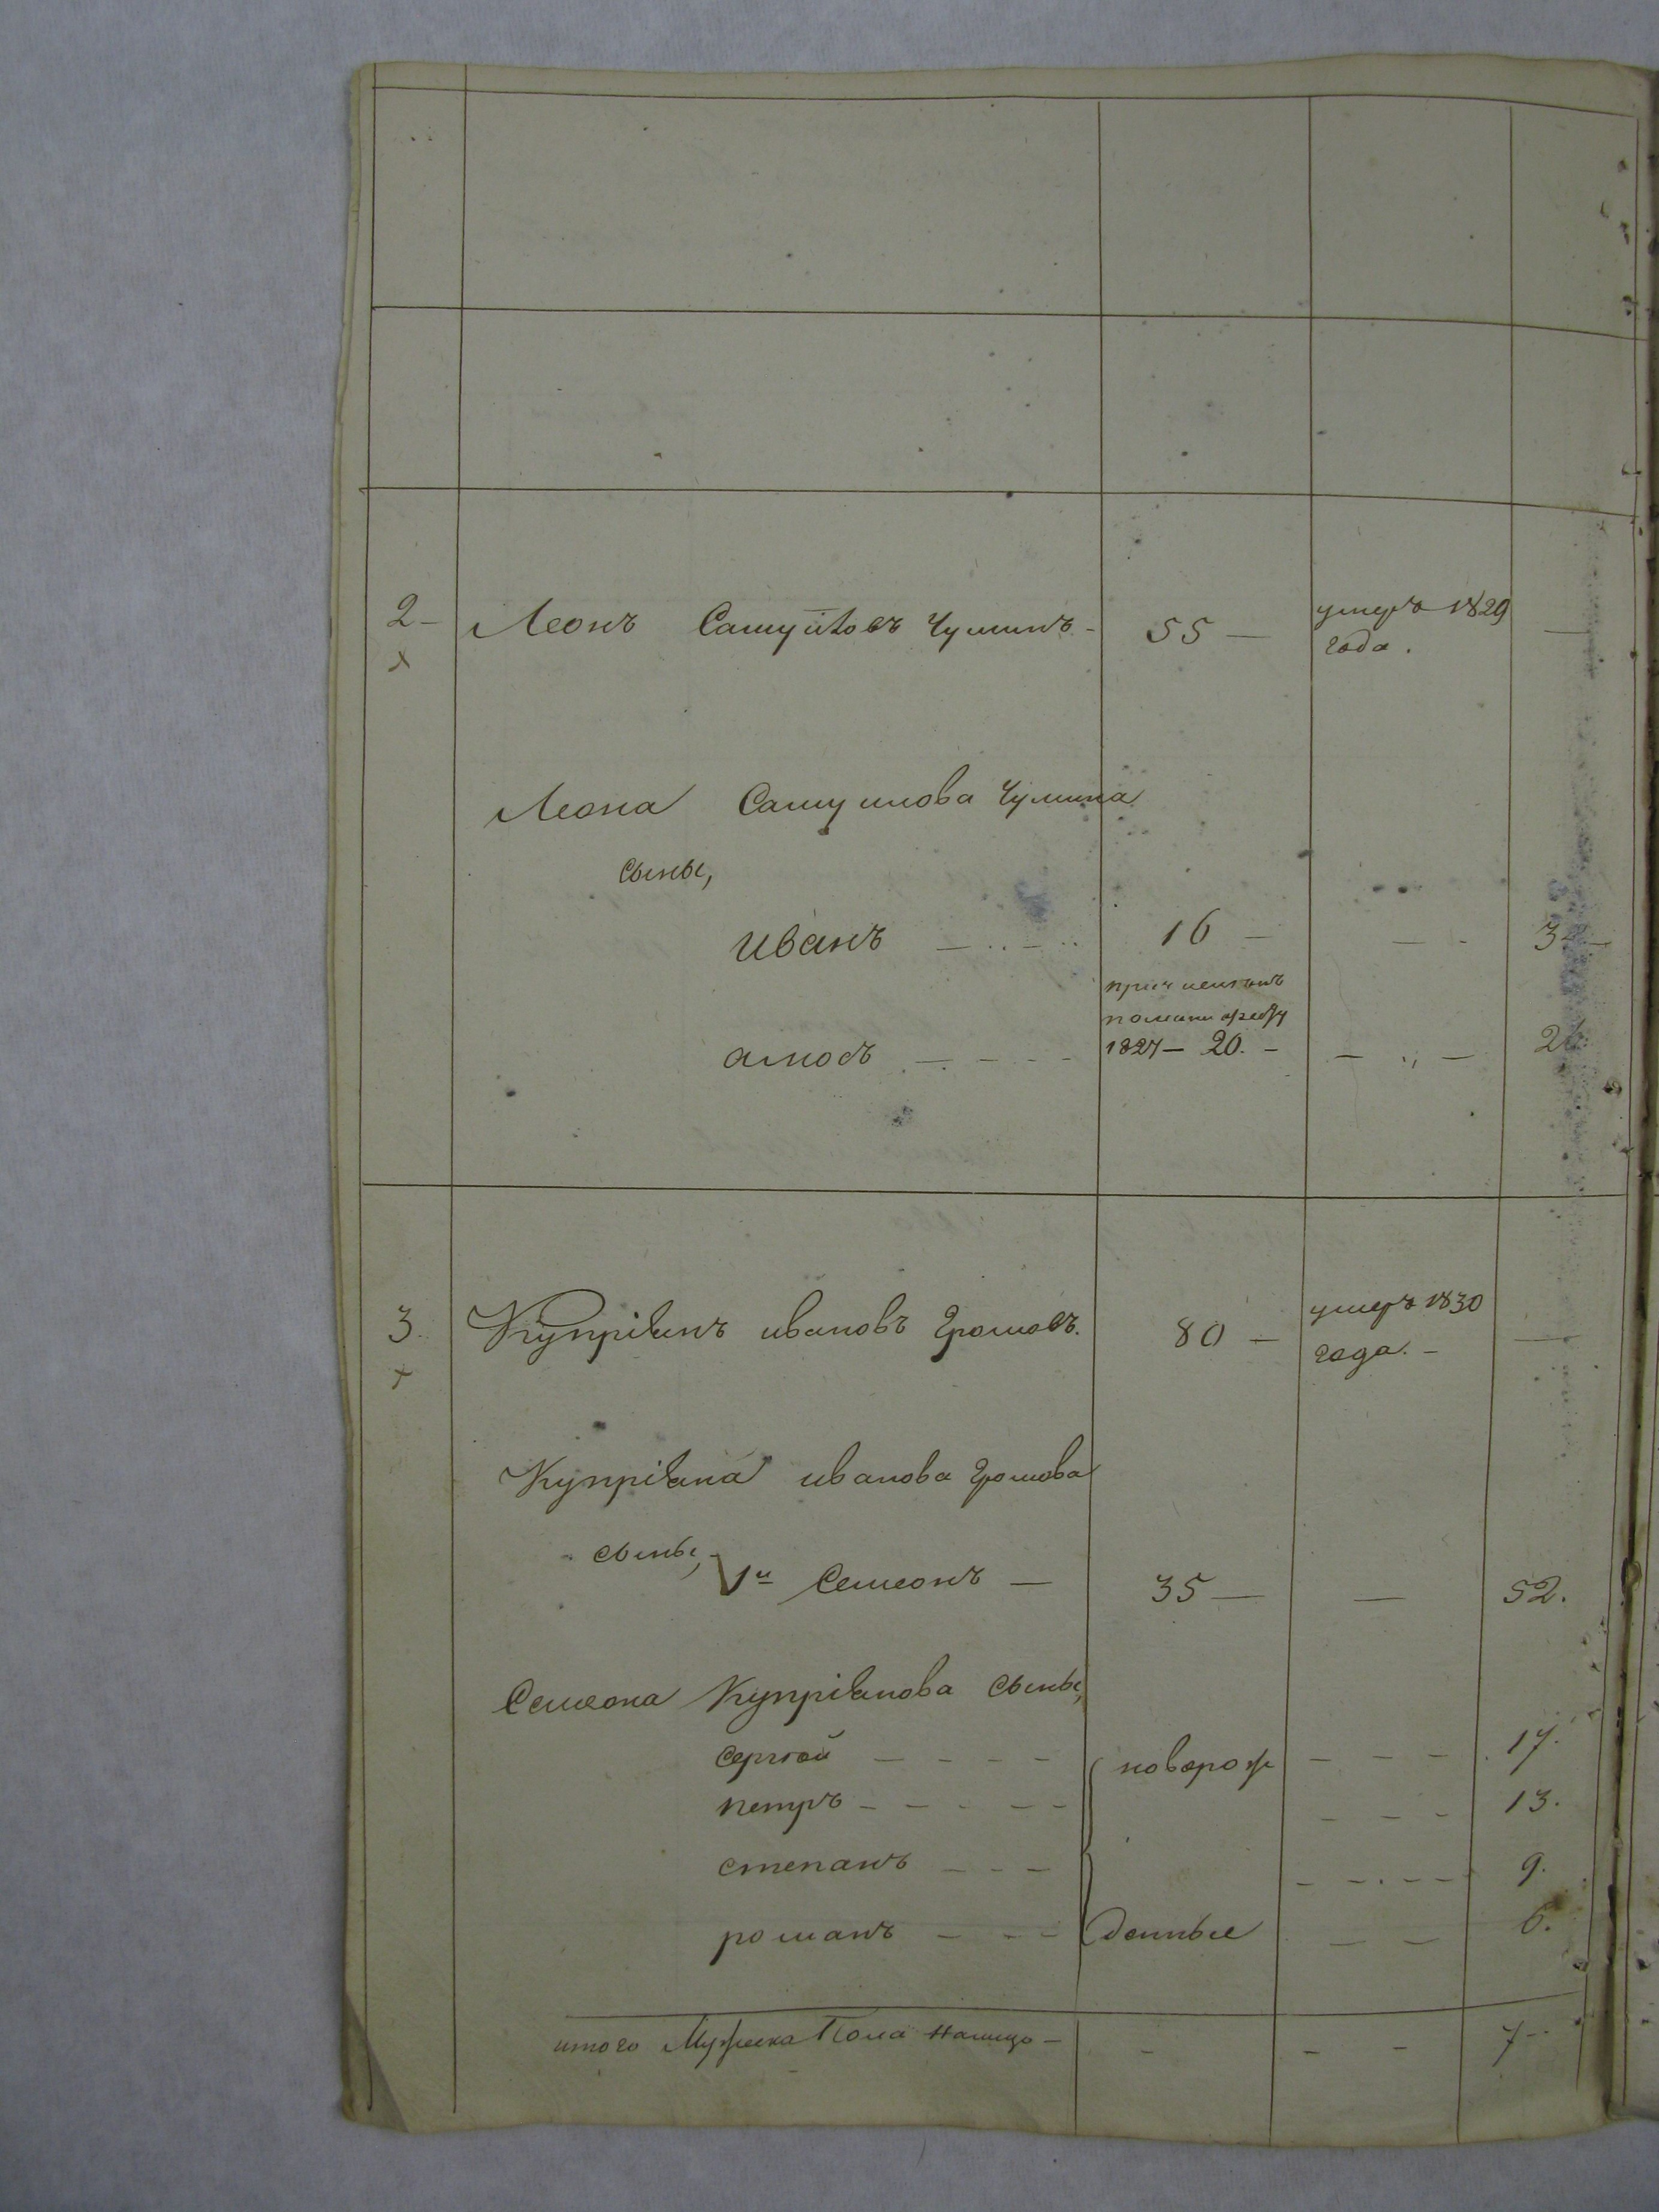 2 – Леонъ Самуйловъ Чуминъ – 55 – умеръ 1829 —
х года.
Леона Самуилова Чумина
сыны,
иванъ 16 – — -
причисленъ
1827 – 20. –
амосъ — - - -
3. Купріянъ ивановъ Громовъ. 80 — умеръ 1830 —
х года. –
Купріяна иванова Громова
сыны,
1й Семеонъ — 35 — — 52.
Семеона Купріянова сыны,
сергей — - - - новорож – – – 17.
петръ – – - – – – – - 13.
степанъ – – – – – . – – 9.
романъ – - – денные – – 6.
итого Мужеска Пола налицо – - - - 7 –